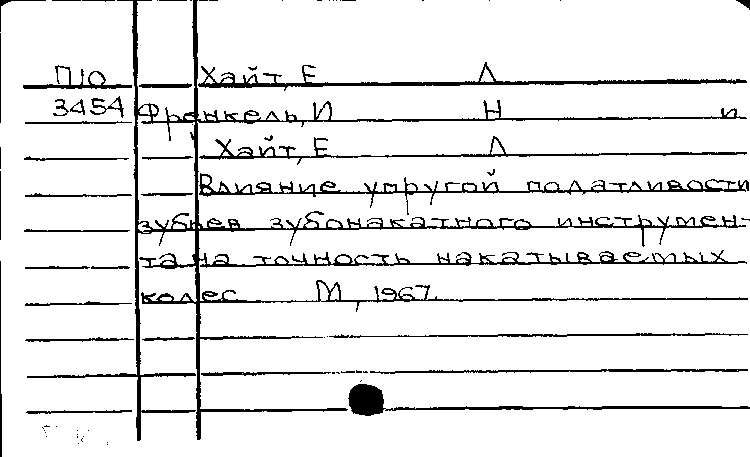 П10 Хайт, Е Л
3454 Френкель, И Н и
Хайт, Е Л
Влияние упругой податливости
зубьев зубонакатного инструмен-
та на точность накатываемых
колес М, 1967.